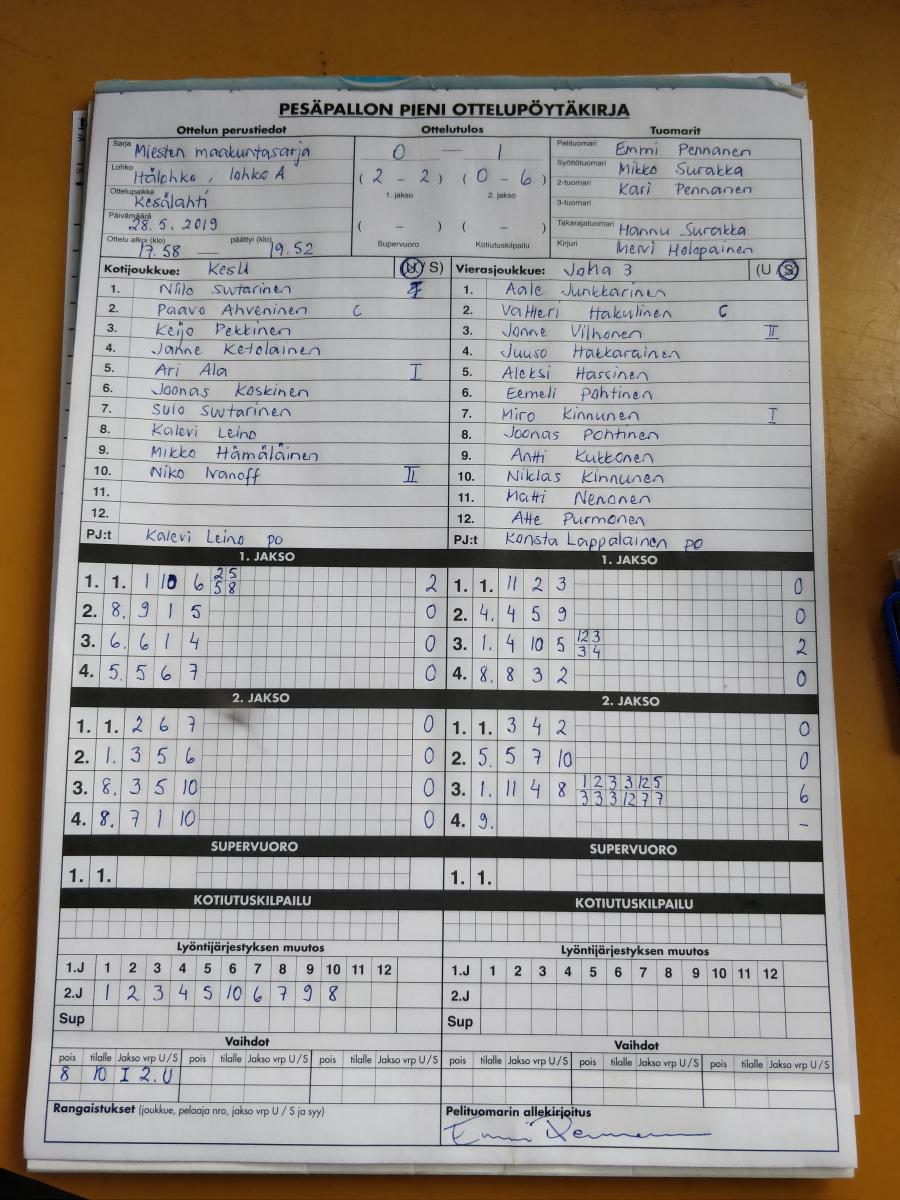 PESÄPALLON PIENI OTTELUPÖYTÄKIRJA
Ottelun perustiedot Ottelutulos Tuomarit
Sarja Miesten maakuntasarja
Lohko Itälohko, lohko A
Ottelupaikka Kesälahti
Päivämäärä 28.5.2019
Ottelu alkoi (klo) 17.58 — päättyi (klo) 19.52
0 — 1
(2 - 2) (0 - 6)
1. jakso 2. jakso
( - ) ( - )
Supervuoro Kotiutuskilpailu
Pelituomari Emmi Pennanen
Syöttötuomari Mikko Surakka
2-tuomari Kari Pennanen
3-tuomari
Takarajatuomari Hannu Surakka
Kirjuri Mervi Holopainen
Kotijoukkue: KesU (U / S)
1. Niilo Suutarinen
2. Paavo Ahveninen C
3. Keijo Pekkinen
4. Janne Ketolainen
5. Ari Ala I
6. Joonas Koskinen
7. Sulo Suutarinen
8. Kalevi Leino
9. Mikko Hämäläinen
10. Niko Ivanoff II
11.
12.
PJ:t Kalevi Leino PO
Vierasjoukkue: JoMa 3 (U / S)
1. Aale Junkkarinen
2. Valtteri Hakulinen C
3. Jonne Vilhonen II
4. Juuso Hakkarainen
5. Aleksi Hassinen
6. Eemeli Pohtinen
7. Miro Kinnunen I
8. Joonas Pohtinen
9. Antti Kukkonen
10. Niklas Kinnunen
11. Matti Nenonen
12. Atte Purmonen
PJ:t Konsta Lappalainen PO
1. JAKSO
1. 1. 1 10 6 2 5 2
5 8
2. 8. 9 1 5 0
3. 6. 6 1 4 0
4. 5. 5 6 7 0
2. JAKSO
1. 1. 2 6 7 0
2. 1. 3 5 6 0
3. 8. 3 5 10 0
4. 8. 7 1 10 0
SUPERVUORO
1. 1.
KOTIUTUSKILPAILU
Lyöntijärjestyksen muutos
1.J 1 2 3 4 5 6 7 8 9 10 11 12
2.J 1 2 3 4 5 10 6 7 9 8
Sup
Vaihdot
pois tilalle Jakso vrp U/S pois tilalle Jakso vrp U/S pois tilalle Jakso vrp U/S
8 10 I 2. U
Rangaistukset (joukkue, pelaaja nro, jakso vrp U / S ja syy)
1. JAKSO
1. 1. 11 2 3 0
2. 4. 4 5 9 0
3. 1. 4 10 5 12 3 2
3 4
4. 8. 8 3 2 0
2. JAKSO
1. 1. 3 4 2 0
2. 5. 5 7 10 0
3. 1. 11 4 8 1 2 3 3 12 5 6
3 3 3 12 7 7
4. 9. -
SUPERVUORO
1. 1.
KOTIUTUSKILPAILU
Lyöntijärjestyksen muutos
1.J 1 2 3 4 5 6 7 8 9 10 11 12
2.J
Sup
Vaihdot
pois tilalle Jakso vrp U/S pois tilalle Jakso vrp U/S pois tilalle Jakso vrp U/S
Pelituomarin allekirjoitus
Emmi Pennanen